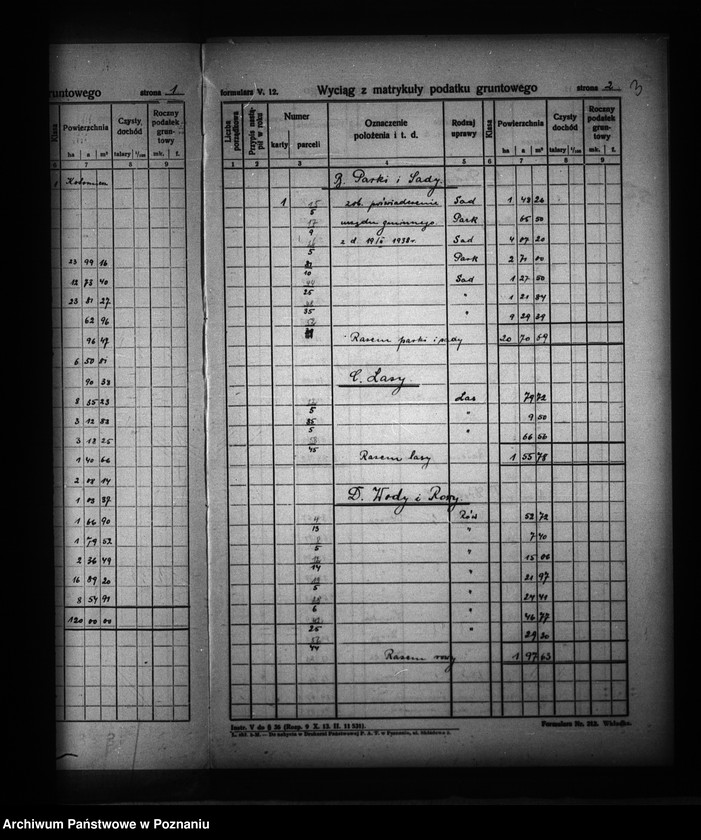 gruntowego strona 1
Klasa Powierzchnia Czysty dochód Roczny podatek gruntowy
ha a m² talary ¹/₁₀₀ mk. f.
6 7 8 9
23 99 16
12 73 40
23 81 27
62 96
96 47
6 50 81
90 38
8 35 23
3 12 82
3 18 25
1 40 66
2 08 14
1 03 37
1 66 90
1 79 52
2 36 49
16 89 20
8 54 91
120 00 00
formularz V. 12. Wyciąg z matrykuły podatku gruntowego strona 2
3
Liczba porządkowa Numer Oznaczenie położenia i t. d. Rodzaj uprawy Klasa Powierzchnia Czysty dochód Roczny podatek gruntowy
karty parceli ha a m² talary ¹/₁₀₀ mk. f.
1 2 3 4 5 6 7 8 9
B. Parki i Sady.
1 15/5 zob. poświadczenie Sad 1 48 26
17/9 urzędu gminnego Park 65 50
5 z d. 19/ 1938r. Sad 4 07 20
10 Park 2 71 00
25 Sad 1 27 50
35 " 1 21 84
" 9 29 39
Razem parki i sady 20 70 69
C. Lasy.
5 Las 79 72
5 " 9 50
45 " 66 56
Razem lasy 1 55 78
D. Wody i Rowy.
13 Rów 52 72
5 " 7 40
14 " 15 06
5 " 21 97
6 " 24 41
25 " 46 77
44 " 29 30
Razem rowy 1 97 63
Instr. V do § 36 (Rozp. 9 X. 15. II. 11 531). Formularz Nr. 212. Wkładka.
Archiwum Państwowe w Poznaniu